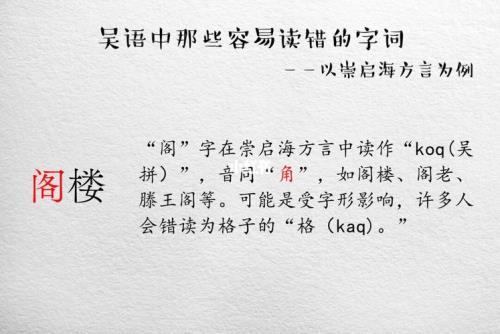 吴语中那些容易读错的字词
——以崇启海方言为例
阁楼
“阁”字在崇启海方言中读作“koq(吴
拼)”，音同“角”，如阁楼、阁老、
滕王阁等。可能是受字形影响，许多人
会错读为格子的“格（kaq)。”